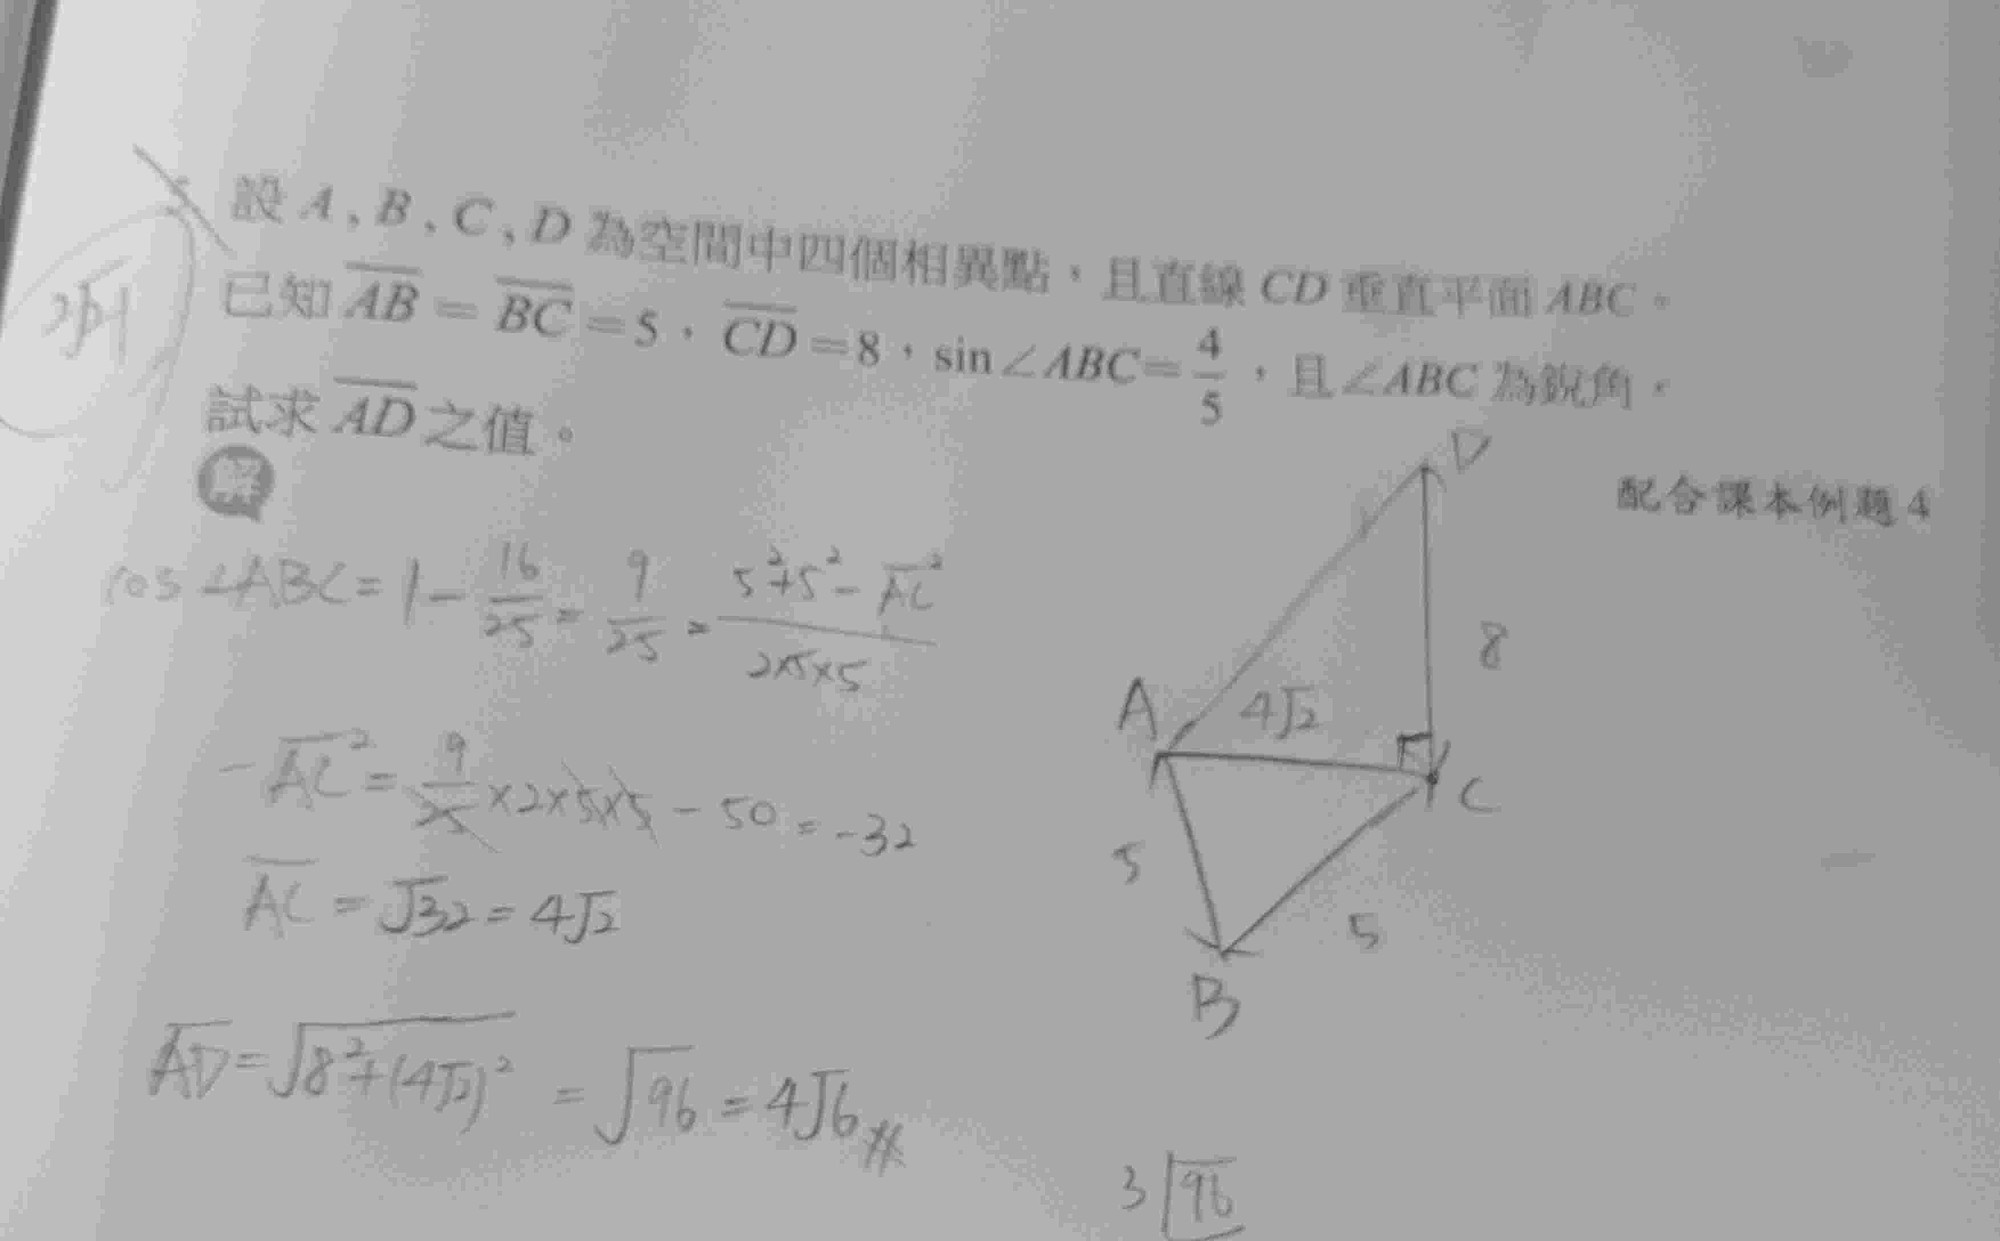 設 A, B, C, D 為空間中四個相異點,且直線 CD 垂直平面 ABC。
已知 \overline{AB} = \overline{BC} = 5,\overline{CD} = 8,sin∠ABC = 4/5,且∠ABC 為銳角,
試求 \overline{AD} 之值。
解
配合課本例題 4
cos∠ABC = 1 - 16/25 = 9/25 = (5²+5² - \overline{AC}²)/(2×5×5)
-\overline{AC}² = 9/25 ×2×5×5 - 50 = -32
\overline{AC} = √32 = 4√2
\overline{AD} = √(8²+(4√2)²) = √96 = 4√6
D
8
A
4√2
C
5
5
B
3 96